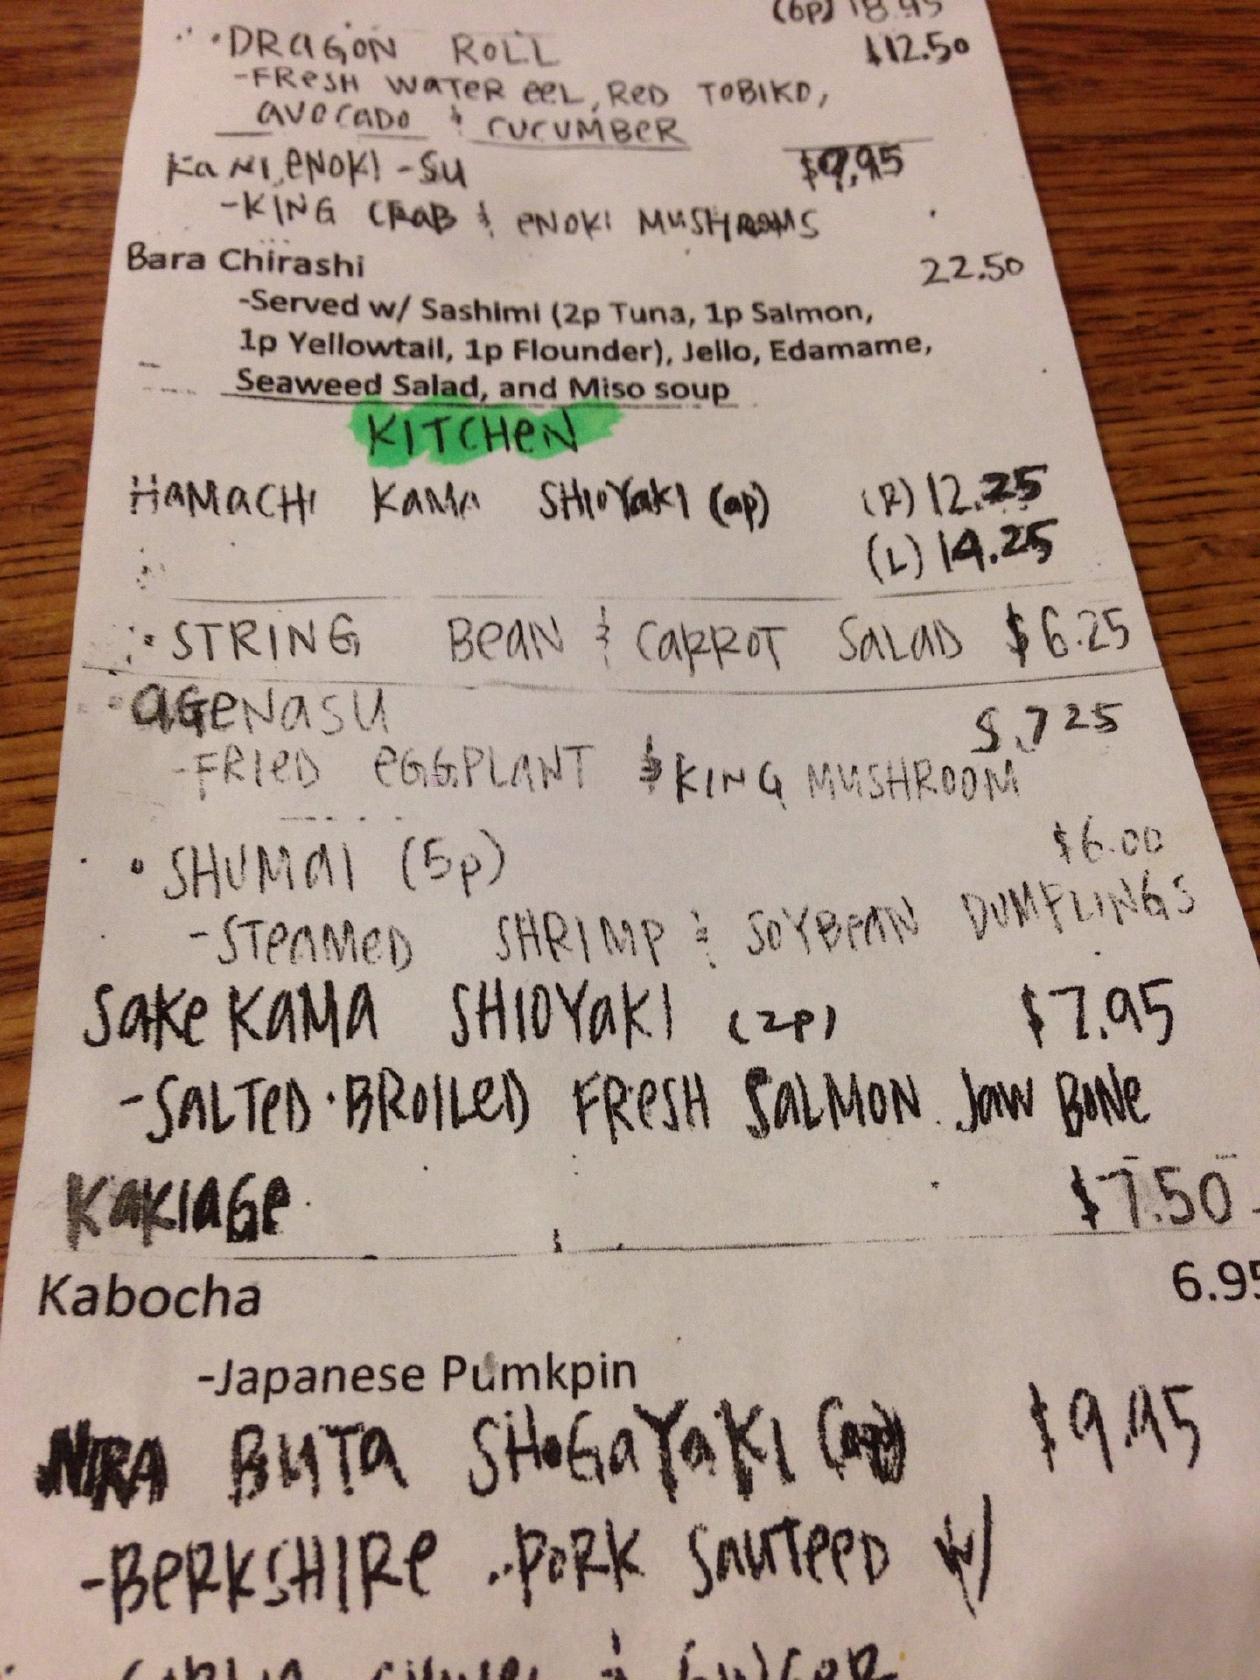 (6p) 18.95
DRAGON ROLL $12.50
-FRESH WATER EEL, RED TOBIKO,
AVOCADO & CUCUMBER
KANI ENOKI-SU $9.95
-KING CRAB & ENOKI MUSHROOMS
Bara Chirashi 22.50
-Served w/ Sashimi (2p Tuna, 1p Salmon,
1p Yellowtail, 1p Flounder), Jello, Edamame,
Seaweed Salad, and Miso soup
KITCHEN
HAMACHI KAMA SHIOYAKI (ap) (R) 12.25
(L) 14.25
STRING BEAN & CARROT SALAD $6.25
AGENASU $.725
-FRIED EGGPLANT & KING MUSHROOM
SHUMAI (5p) $6.00
-STEAMED SHRIMP & SOYBEAN DUMPLINGS
SAKE KAMA SHIOYAKI (2P) $7.95
-SALTED·BROILED FRESH SALMON JAW BONE
KAKIAGE $7.50
Kabocha 6.95
-Japanese Pumkpin
NIRA BUTA SHOGAYAKI $9.95
-BERKSHIRE PORK SAUTEED W/
& GINGER